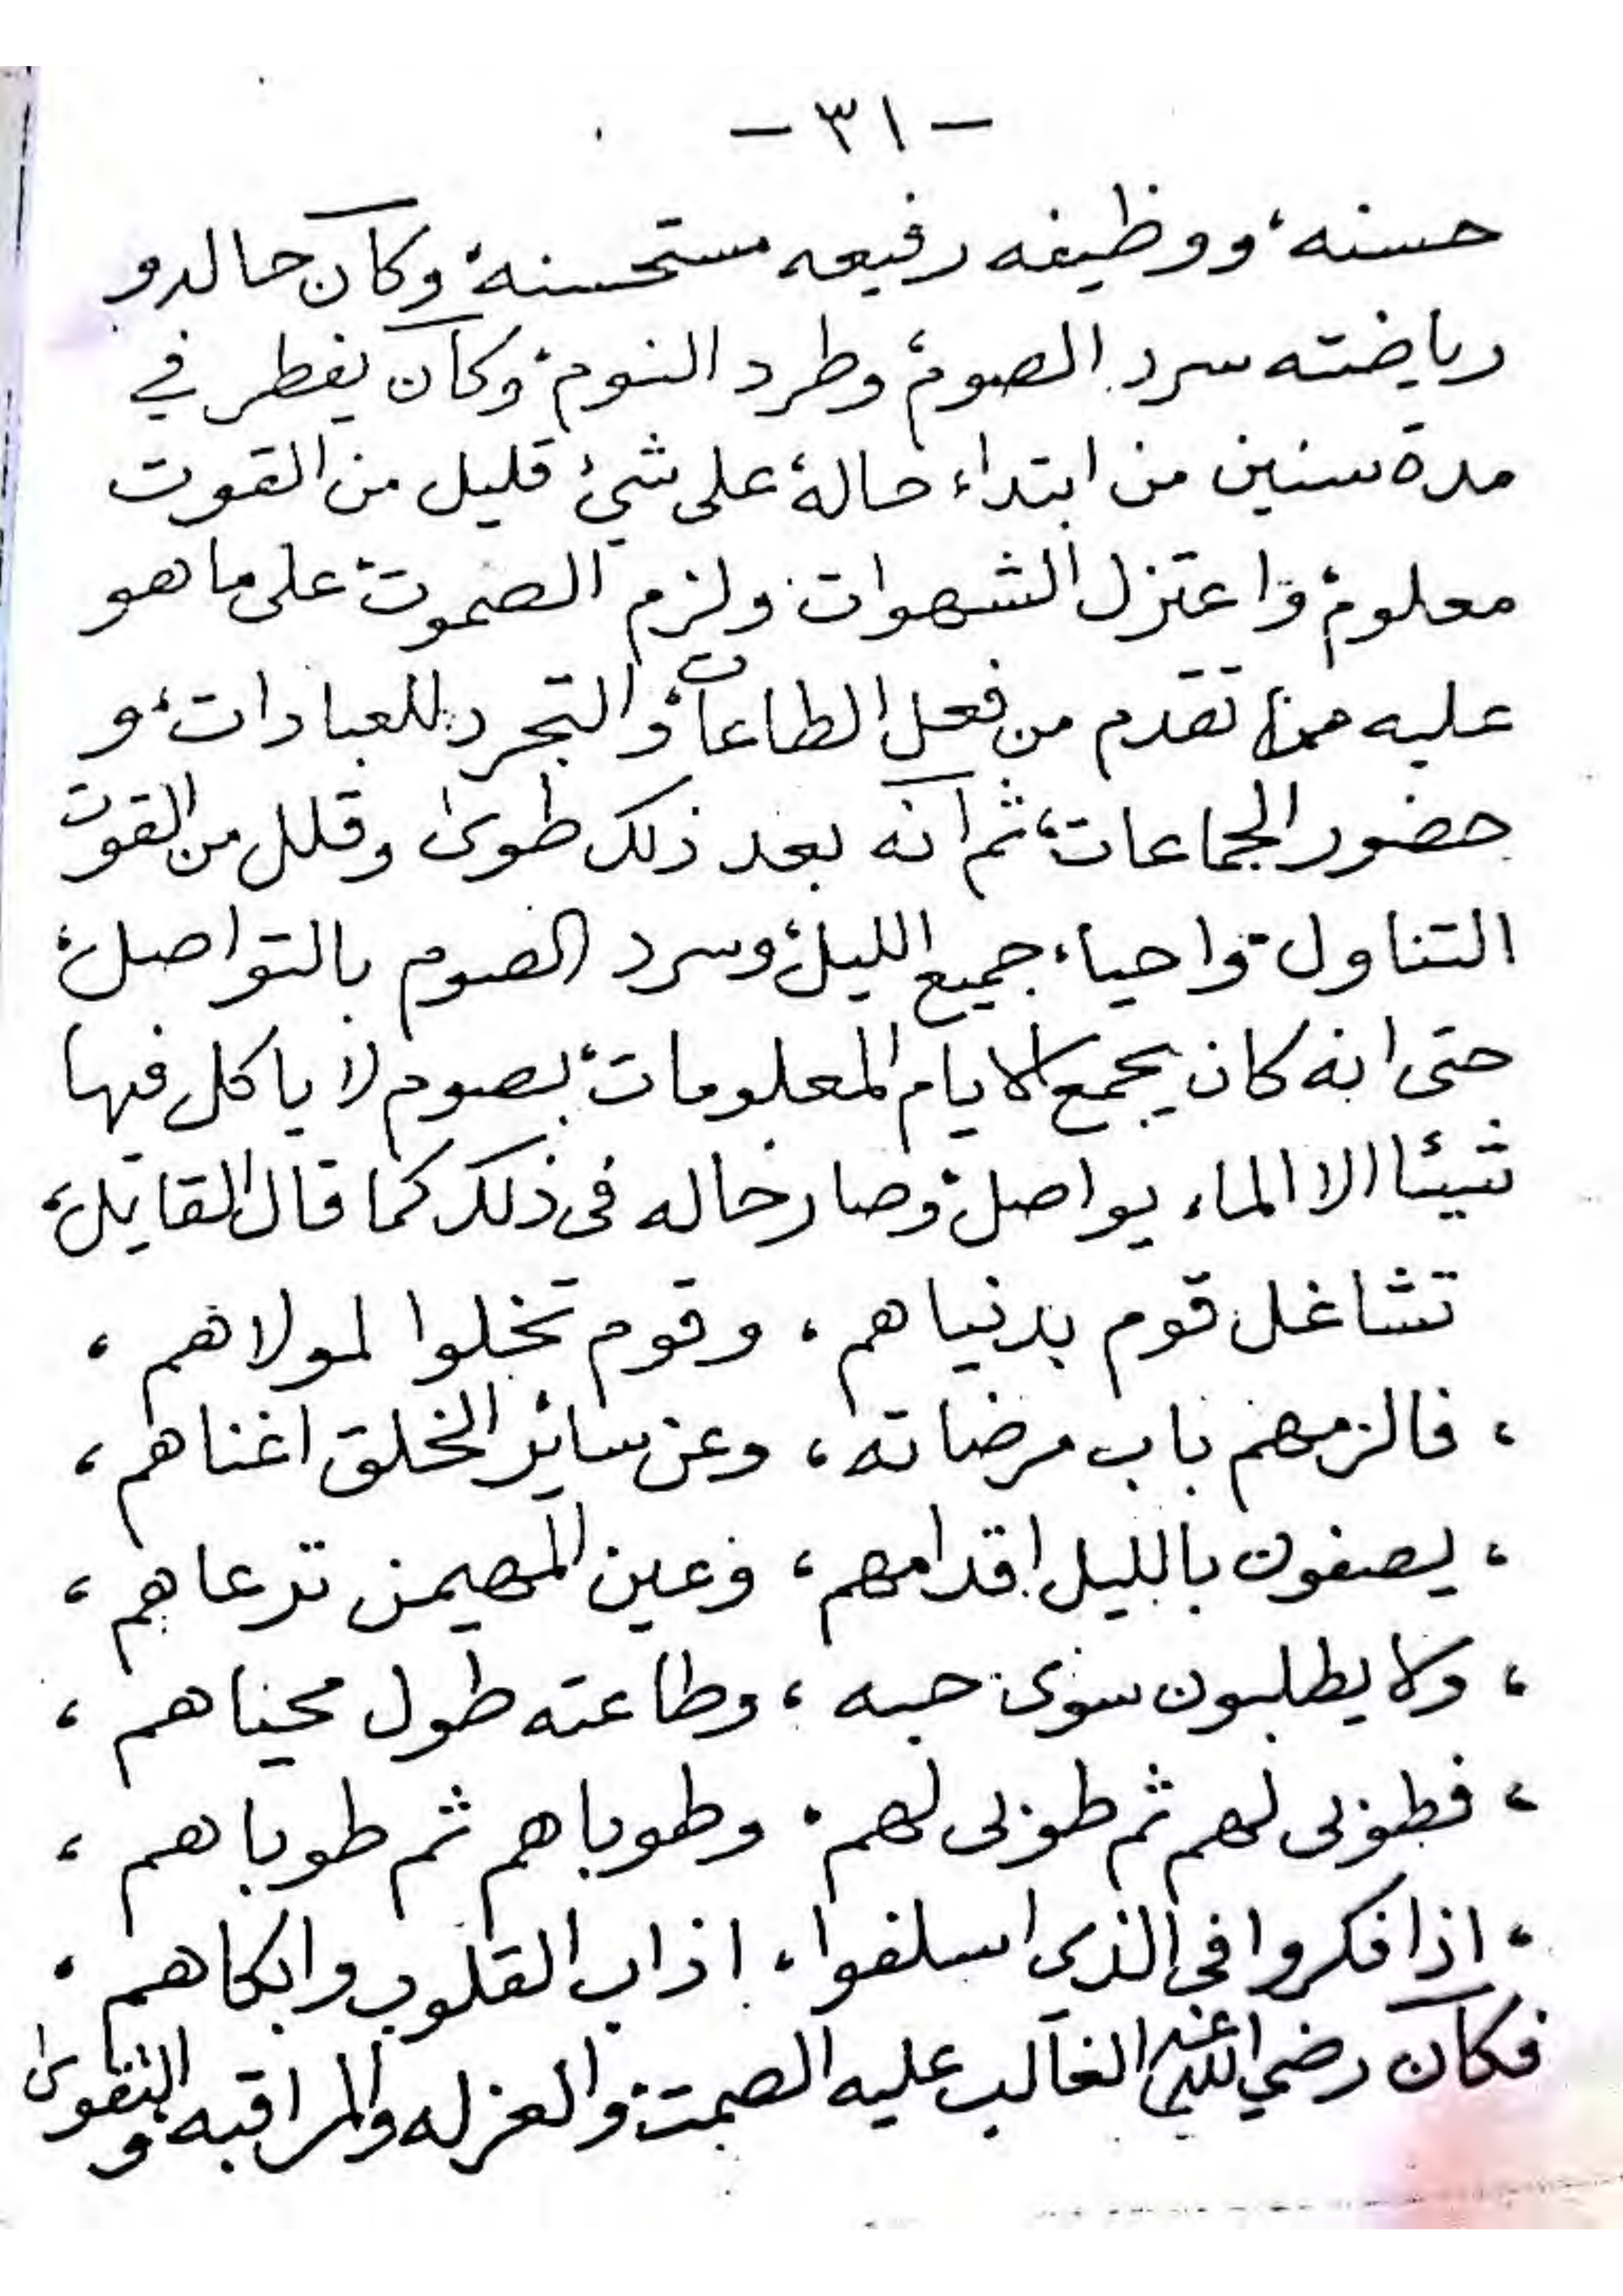 - ٣١ -
حسنه، ووظيفه رفيعه مستحسنه، وكان حاله و
رياضته سرد الصوم، وطرد النوم، وكان يفطر في
مدة سنين من ابتداء حاله، على شيء قليل من القوت
معلوم، واعتزل الشهوات، ولزم الصموت، على ما هو
عليه مما تقدم من فعل الطاعات، والتجرد للعبادات، و
حضور الجماعات، ثم انه بعد ذلك طوى وقلل من القوت
التناول، واحياء جميع الليل، وسرد الصوم بالتواصل،
حتى انه كان يجمع الايام المعلومات، بصوم لا ياكل فيها
شيئا الا الماء يواصل، وصار حاله في ذلك كما قال القايل،
تشاغل قوم بدنياهم، وقوم تخلوا لمولاهم،
، فالزمهم باب مرضاته، وعن سائر الخلق اغناهم،
، يصفون بالليل اقدامهم، وعين المهيمن ترعاهم،
، ولا يطلبون سوى حبه، وطاعته طول محياهم،
، فطوبى لهم ثم طوبى لهم، وطوباهم ثم طوباهم،
، اذا فكروا في الذي اسلفوا، اذاب القلوب وابكاهم،
فكان رضي الله عنه الغالب عليه الصمت، والعزله والمراقبه والتقوى و